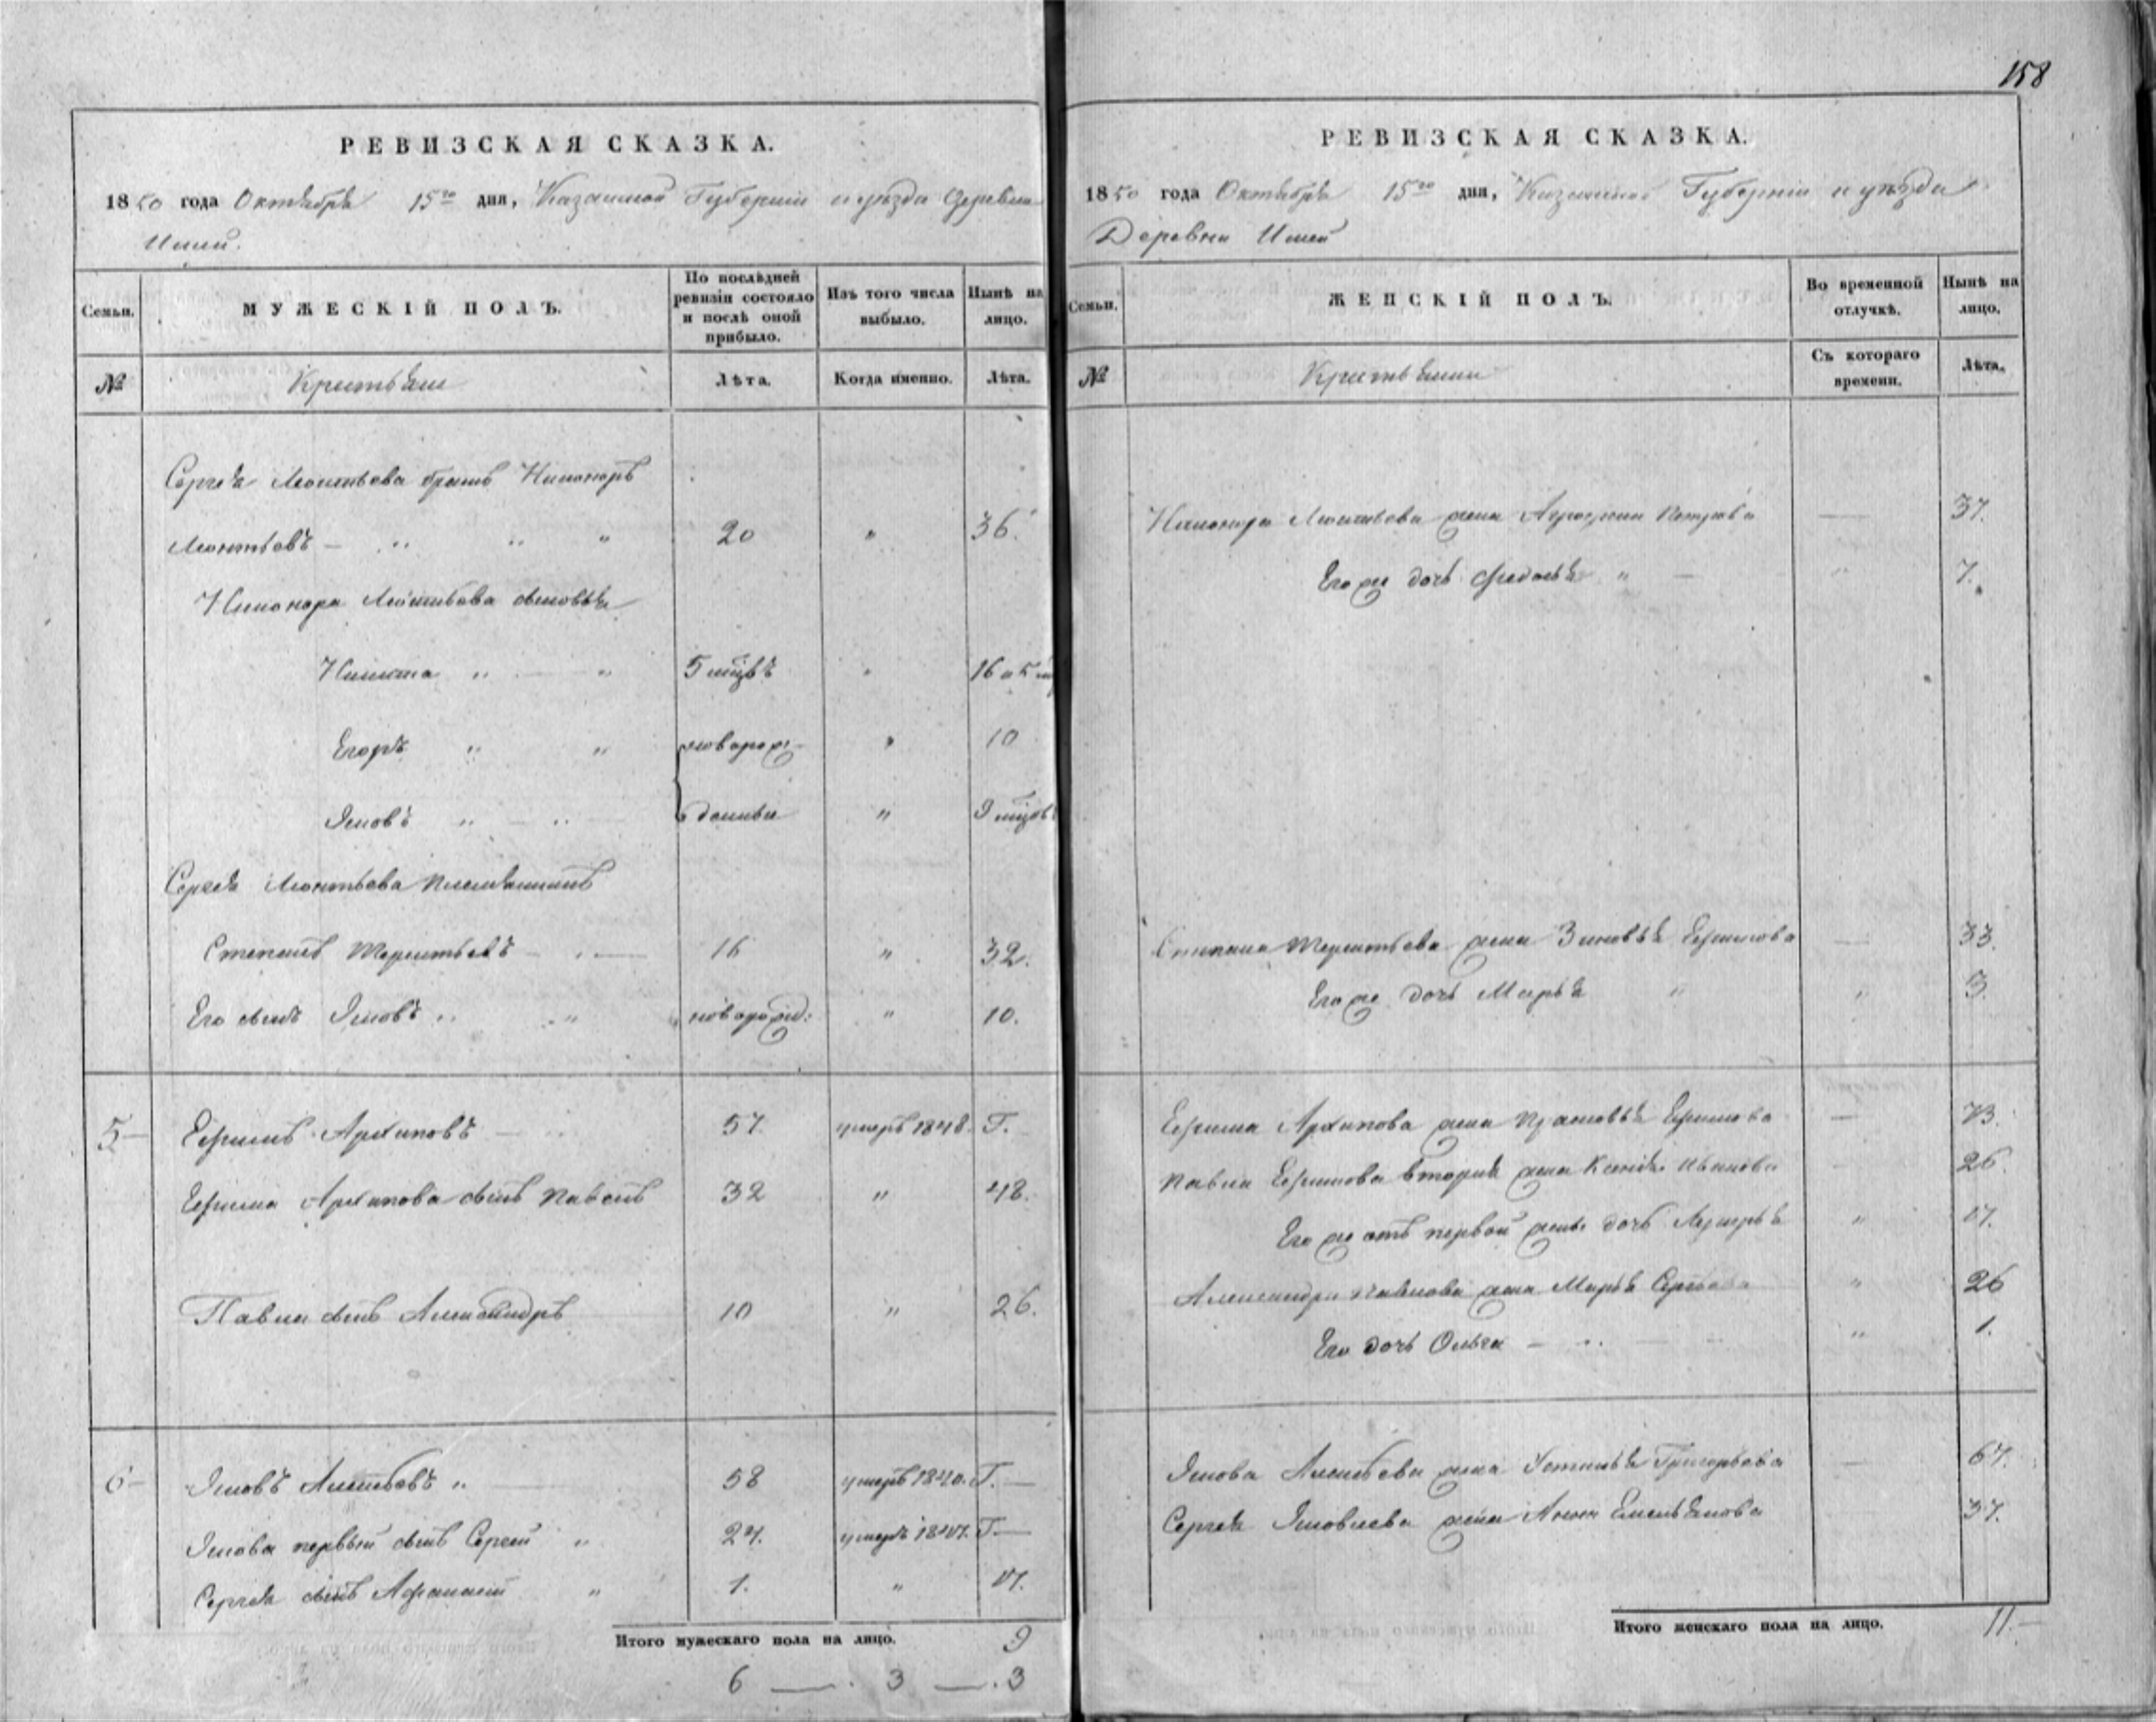 РЕВИЗСКАЯ СКАЗКА.
1850 года Октября 15го дня, Казанской Губернии и уезда Деревни
Семьи.
МУЖЕСКІЙ ПОЛЪ.
По послѣдней ревизіи состояло и послѣ оной прибыло.
Изъ того числа выбыло.
Нынѣ на лицо.
№ Крестьяне Лѣта. Когда именно. Лѣта.
Сергея Леонтьева братъ Никоноръ
Леонтьевъ — " " " 20 " 36.
Никонора Леонтьева сыновья
Никита " — " 5 мцвъ " 16 и 5 м
Егоръ " " новорож- " 10
Яковъ " — " денные " 9 мцовъ
Сергея Леонтьева племянникъ
Степанъ Терентьевъ — " — 16 " 32.
Его сынъ Яковъ " " новорожд: " 10.
5 — Ефимъ Архиповъ — 57 умеръ 1848. Г. —
Ефима Архипова сынъ Павелъ 32 " 48.
Павла сынъ Александръ 10 " 26.
6 — Яковъ Леонтьевъ " 58 умеръ 1840. Г. —
Якова первый сынъ Сергей " 24. умеръ 1847. Г. —
Сергея сынъ Афанасий " 1. " 17.
Итого мужескаго пола на лицо. 9
6 — . 3 — . 3
158
РЕВИЗСКАЯ СКАЗКА.
1850 года Октября 15го дня, Казанской Губернии и уезда
Деревни
Семьи.
ЖЕНСКІЙ ПОЛЪ.
Во временной отлучкѣ.
Нынѣ на лицо.
№ Крестьянки Съ котораго времени. Лѣта.
Никонора Леонтьева жена Петрова — 37.
Его же дочь Федосья " — " 7.
Степана Терентьева жена Зиновья Ефимова — 33.
Его же дочь Марья " " 3.
Ефима Архипова жена Прасковья Ефимова — 73.
Павла Ефимова вторая жена Ксенья Иванова 26.
Его же отъ первой жены дочь " 17.
Александра Павлова жена Марья " 26
Его дочь Ольга — " " 1.
Якова Леонтьева жена Устинья Григорьева — 67.
Сергея Яковлева жена Анна Емельянова 37.
Итого женскаго пола на лицо. 11. —